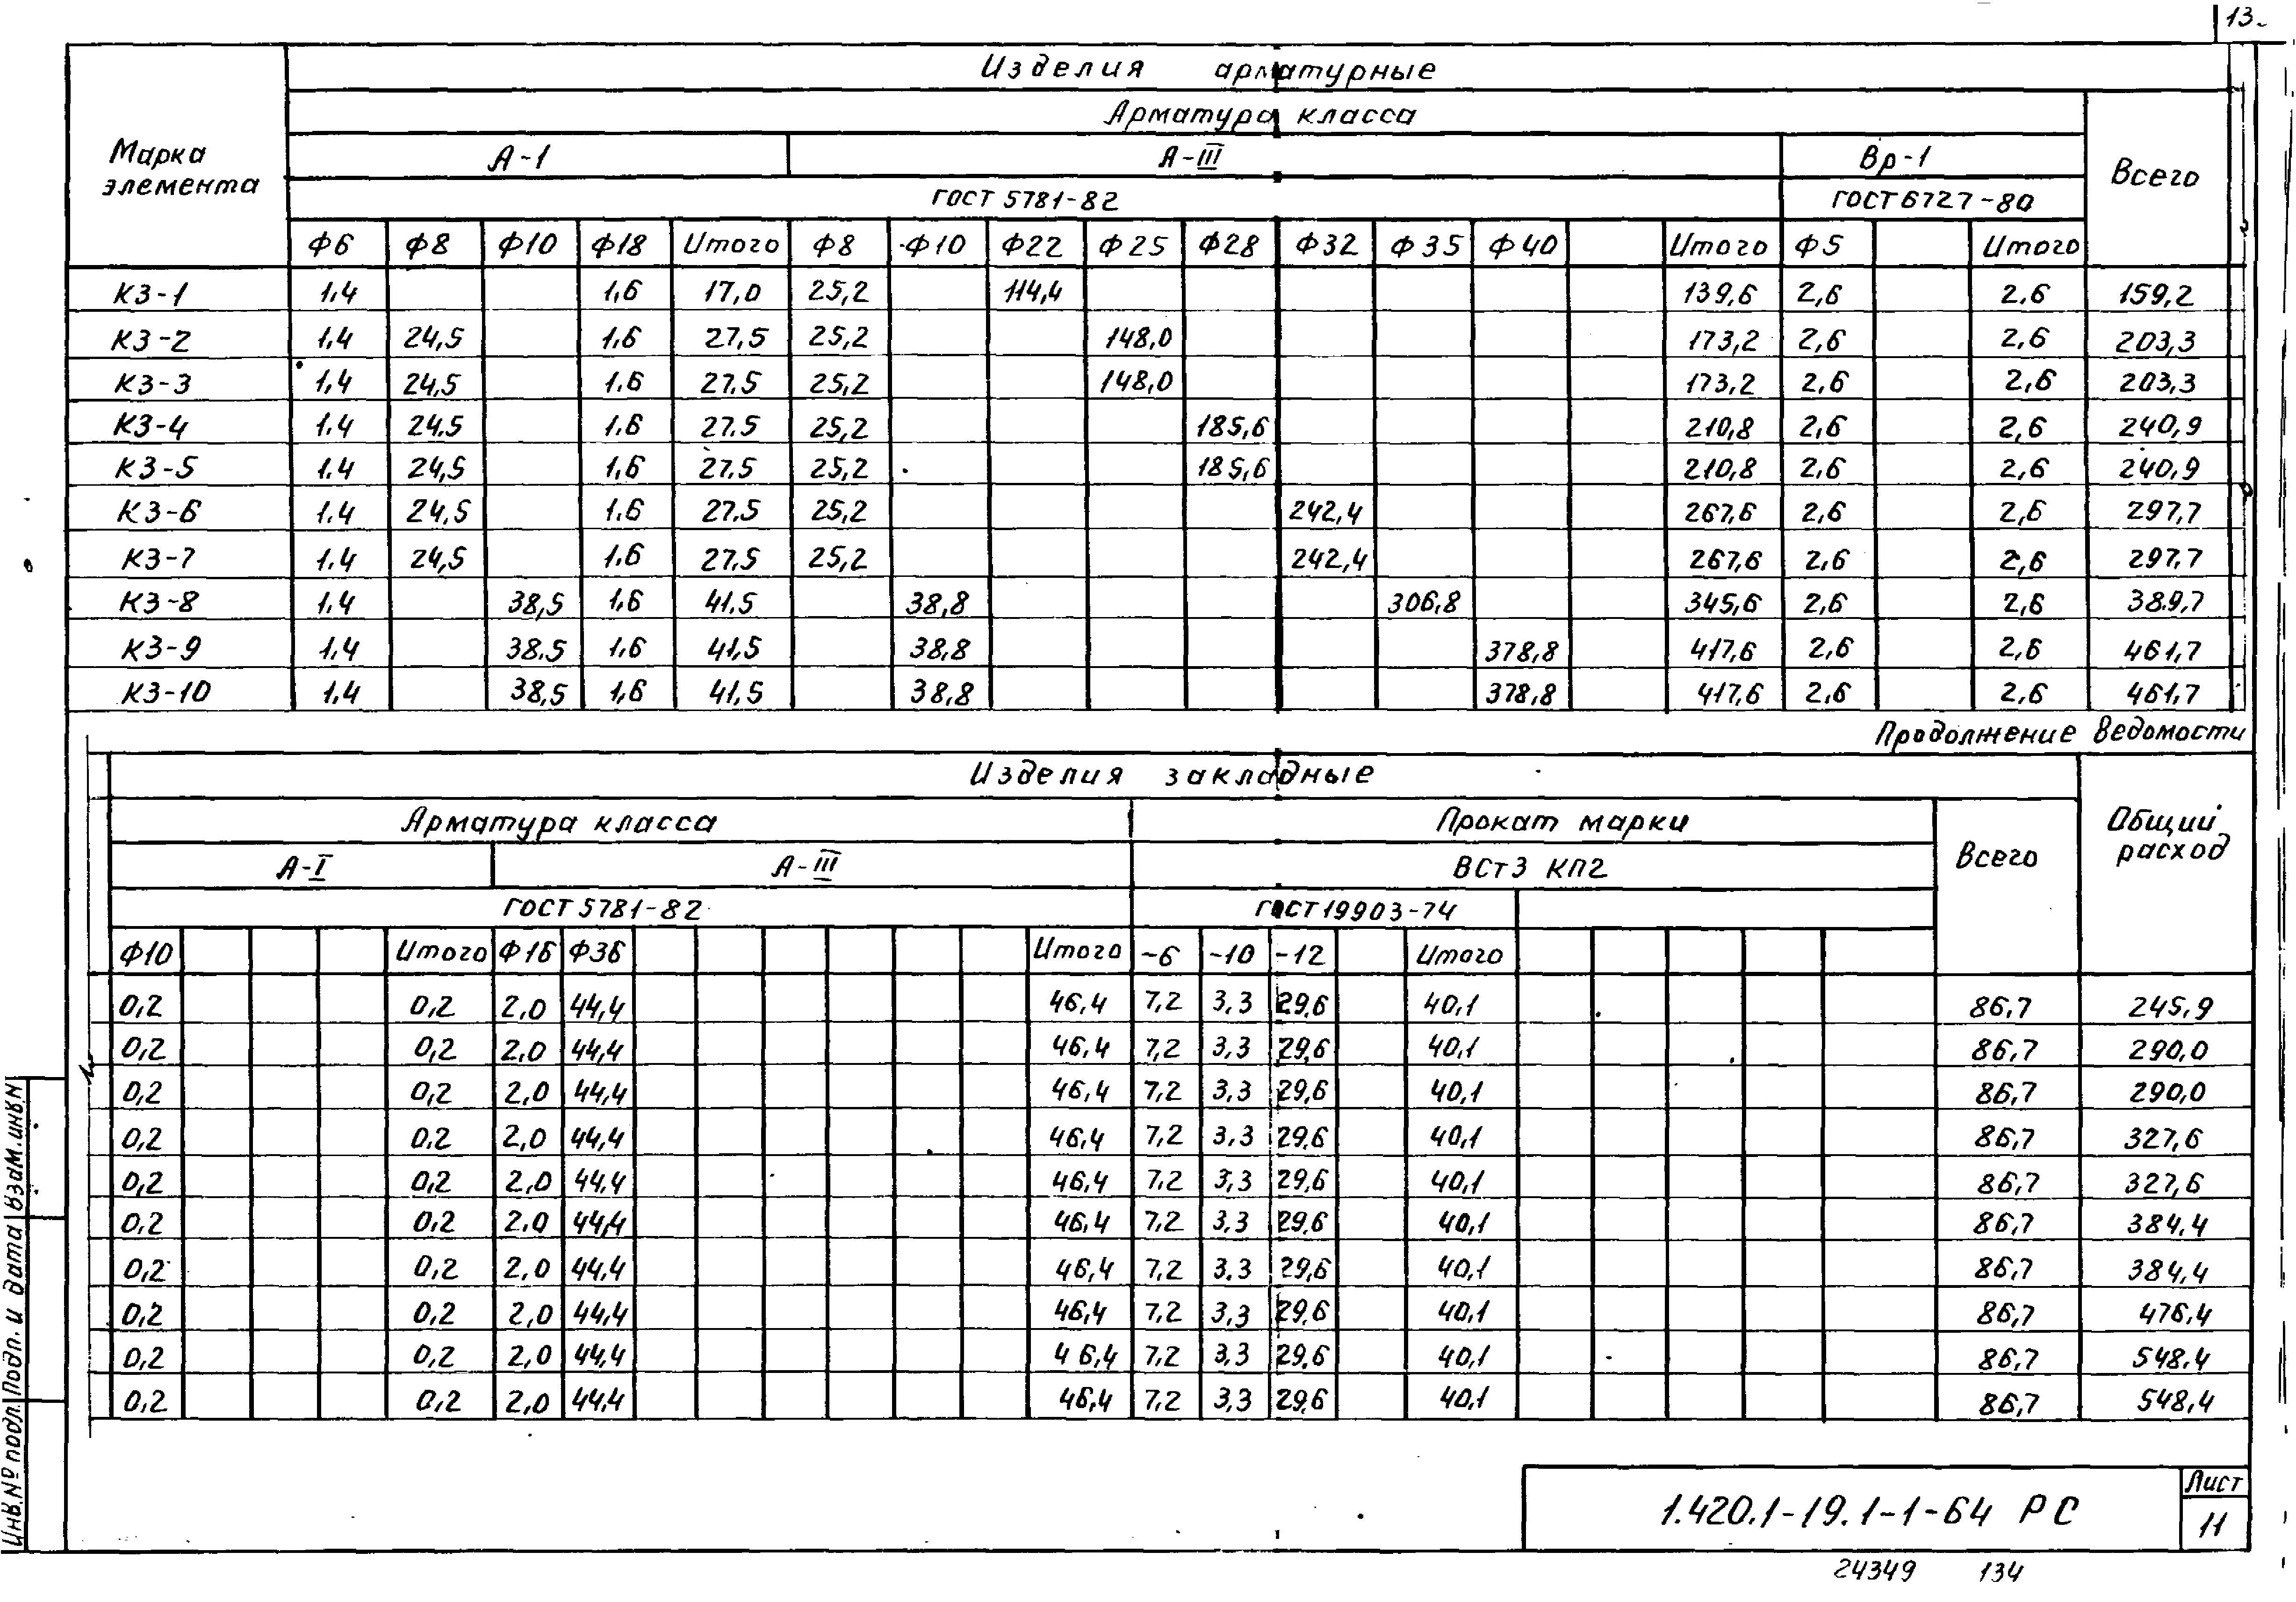 13.
Изделия арматурные
Арматура класса
Марка элемента
А-1 А-III Вр-1 Всего
ГОСТ 5781-82 ГОСТ 6727-80
Ф6 Ф8 Ф10 Ф18 Итого Ф8 Ф10 Ф22 Ф25 Ф28 Ф32 Ф35 Ф40 Итого Ф5 Итого
К3-1 1,4 1,6 17,0 25,2 114,4 139,6 2,6 2,6 159,2
К3-2 1,4 24,5 1,6 27,5 25,2 148,0 173,2 2,6 2,6 203,3
К3-3 1,4 24,5 1,6 27,5 25,2 148,0 173,2 2,6 2,6 203,3
К3-4 1,4 24,5 1,6 27,5 25,2 185,6 210,8 2,6 2,6 240,9
К3-5 1,4 24,5 1,6 27,5 25,2 185,6 210,8 2,6 2,6 240,9
К3-6 1,4 24,5 1,6 27,5 25,2 242,4 267,6 2,6 2,6 297,7
К3-7 1,4 24,5 1,6 27,5 25,2 242,4 267,6 2,6 2,6 297,7
К3-8 1,4 38,5 1,6 41,5 38,8 306,8 345,6 2,6 2,6 389,7
К3-9 1,4 38,5 1,6 41,5 38,8 378,8 417,6 2,6 2,6 461,7
К3-10 1,4 38,5 1,6 41,5 38,8 378,8 417,6 2,6 2,6 461,7
Продолжение ведомости
Изделия закладные
Арматура класса Прокат марки Всего Общий расход
А-I А-III ВСт3 КП2
ГОСТ 5781-82 ГОСТ 19903-74
Ф10 Итого Ф16 Ф36 Итого -6 -10 -12 Итого
0,2 0,2 2,0 44,4 46,4 7,2 3,3 29,6 40,1 86,7 245,9
0,2 0,2 2,0 44,4 46,4 7,2 3,3 29,6 40,1 86,7 290,0
0,2 0,2 2,0 44,4 46,4 7,2 3,3 29,6 40,1 86,7 290,0
0,2 0,2 2,0 44,4 46,4 7,2 3,3 29,6 40,1 86,7 327,6
0,2 0,2 2,0 44,4 46,4 7,2 3,3 29,6 40,1 86,7 327,6
0,2 0,2 2,0 44,4 46,4 7,2 3,3 29,6 40,1 86,7 384,4
0,2 0,2 2,0 44,4 46,4 7,2 3,3 29,6 40,1 86,7 384,4
0,2 0,2 2,0 44,4 46,4 7,2 3,3 29,6 40,1 86,7 476,4
0,2 0,2 2,0 44,4 46,4 7,2 3,3 29,6 40,1 86,7 548,4
0,2 0,2 2,0 44,4 46,4 7,2 3,3 29,6 40,1 86,7 548,4
Инв.№ подл. Подп. и дата Взам.инв.N
1.420.1-19.1-1-64 РС
Лист
11
24349 134